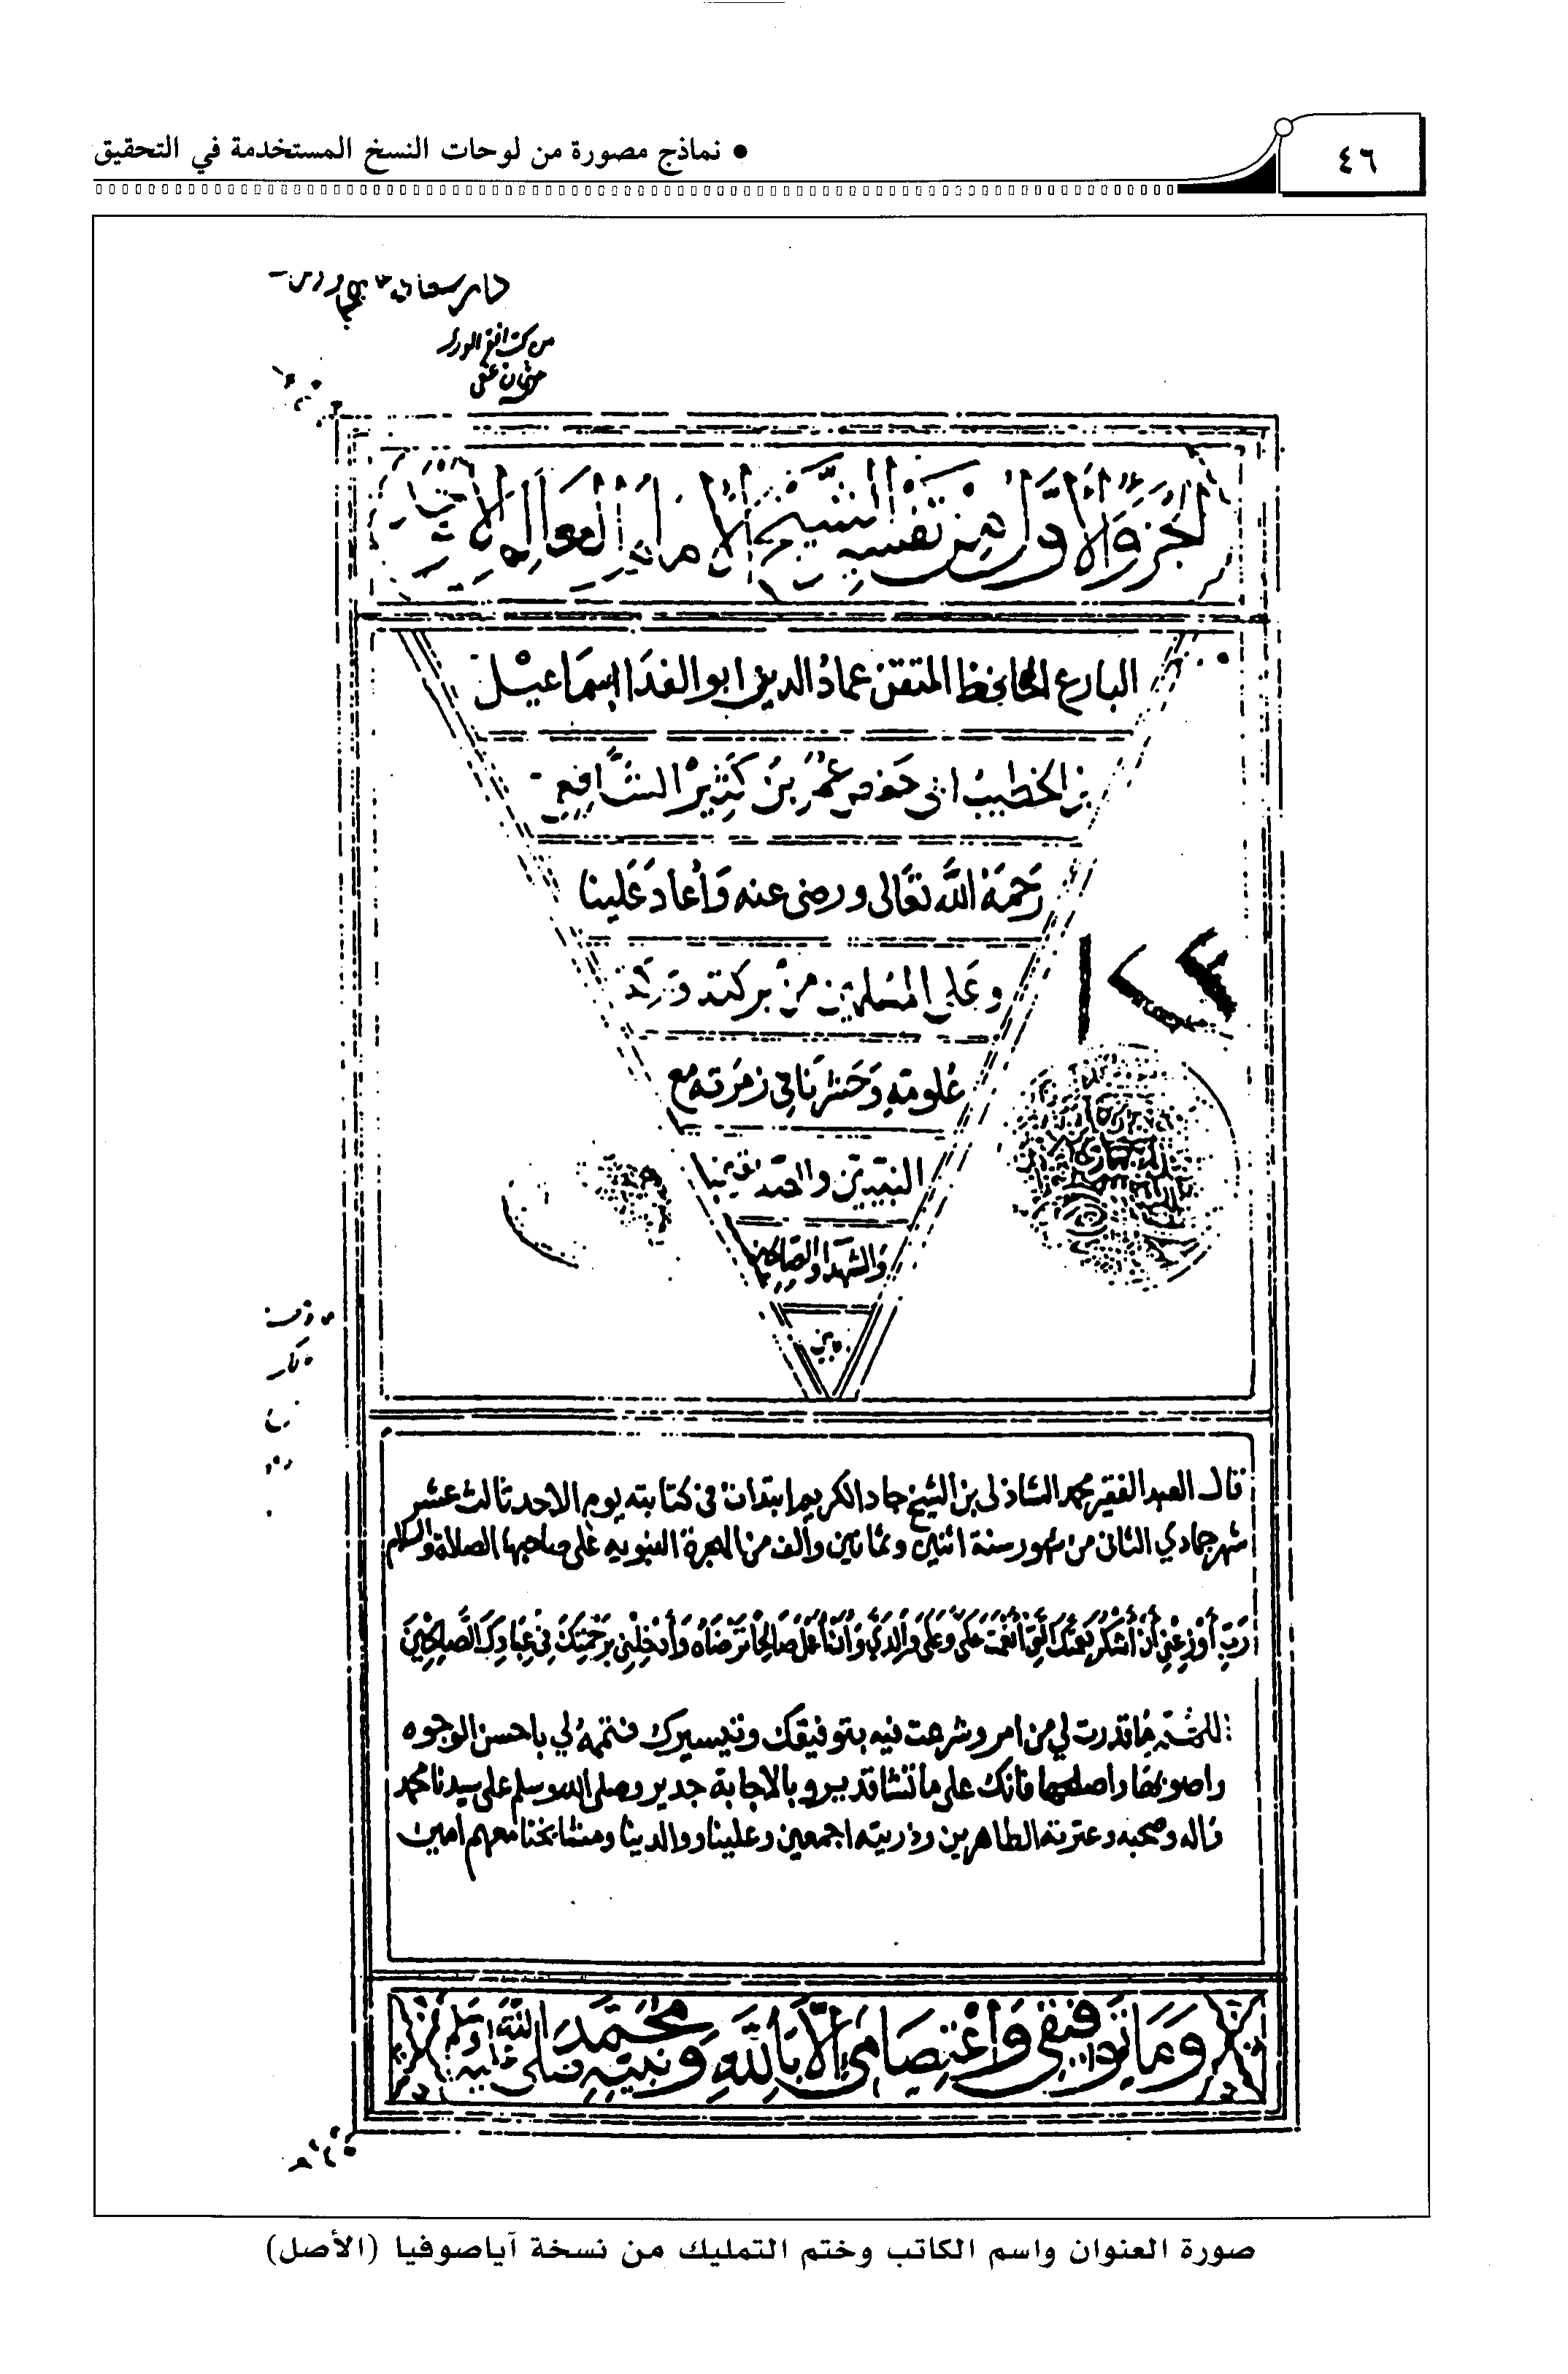 ٤٦
• نماذج مصورة من لوحات النسخ المستخدمة في التحقيق
الجزؤ الأول من تفسير الشيخ الإمام العالم
البارع الحافظ المتقن عماد الدين ابو الفدا اسماعيل
بن الخطيب ابى حفص عمر بن كثير الشافعي
رحمة الله تعالى ورضى عنه وأعاد علينا
وعلى المسلمين من بركته
علومه وحشرنا في زمرته مع
النبيين والصديقين
والشهدا والصالحين
قال العبد الفقير محمد الشاذلى بن الشيخ جاد الكريم ابتدات فى كتابته يوم الاحد ثالث عشر
شهر جمادي الثانى من شهور سنة اثنين وثمانين والف من الهجرة النبويه على صاحبها الصلاة والسلام
رَبِّ أَوْزِعْنِي أَنْ أَشْكُرَ نِعْمَتَكَ الَّتِي أَنْعَمْتَ عَلَيَّ وَعَلَى وَالِدَيَّ وَأَنْ أَعْمَلَ صَالِحًا تَرْضَاهُ وَأَدْخِلْنِي بِرَحْمَتِكَ فِي عِبَادِكَ الصَّالِحِينَ
ما قدرت لي من امر وشرعت فيه بتوفيقك وتيسيرك فتممه لي باحسن الوجوه
واصلحها فانك على ما تشا قدير وبالاجابة جدير وصلى الله وسلم على سيدنا محمد
واله وصحبه وعترته الطاهرين وذريته اجمعين وعلينا ووالدينا ومشايخنا معهم امين
وَمَا تَوْفِيقِي وَاعْتِصَامِي إِلَّا بِاللَّهِ وَنَبِيِّهِ مُحَمَّدٍ صلى الله عليه وسلم
صورة العنوان واسم الكاتب وختم التمليك من نسخة آياصوفيا (الأصل)